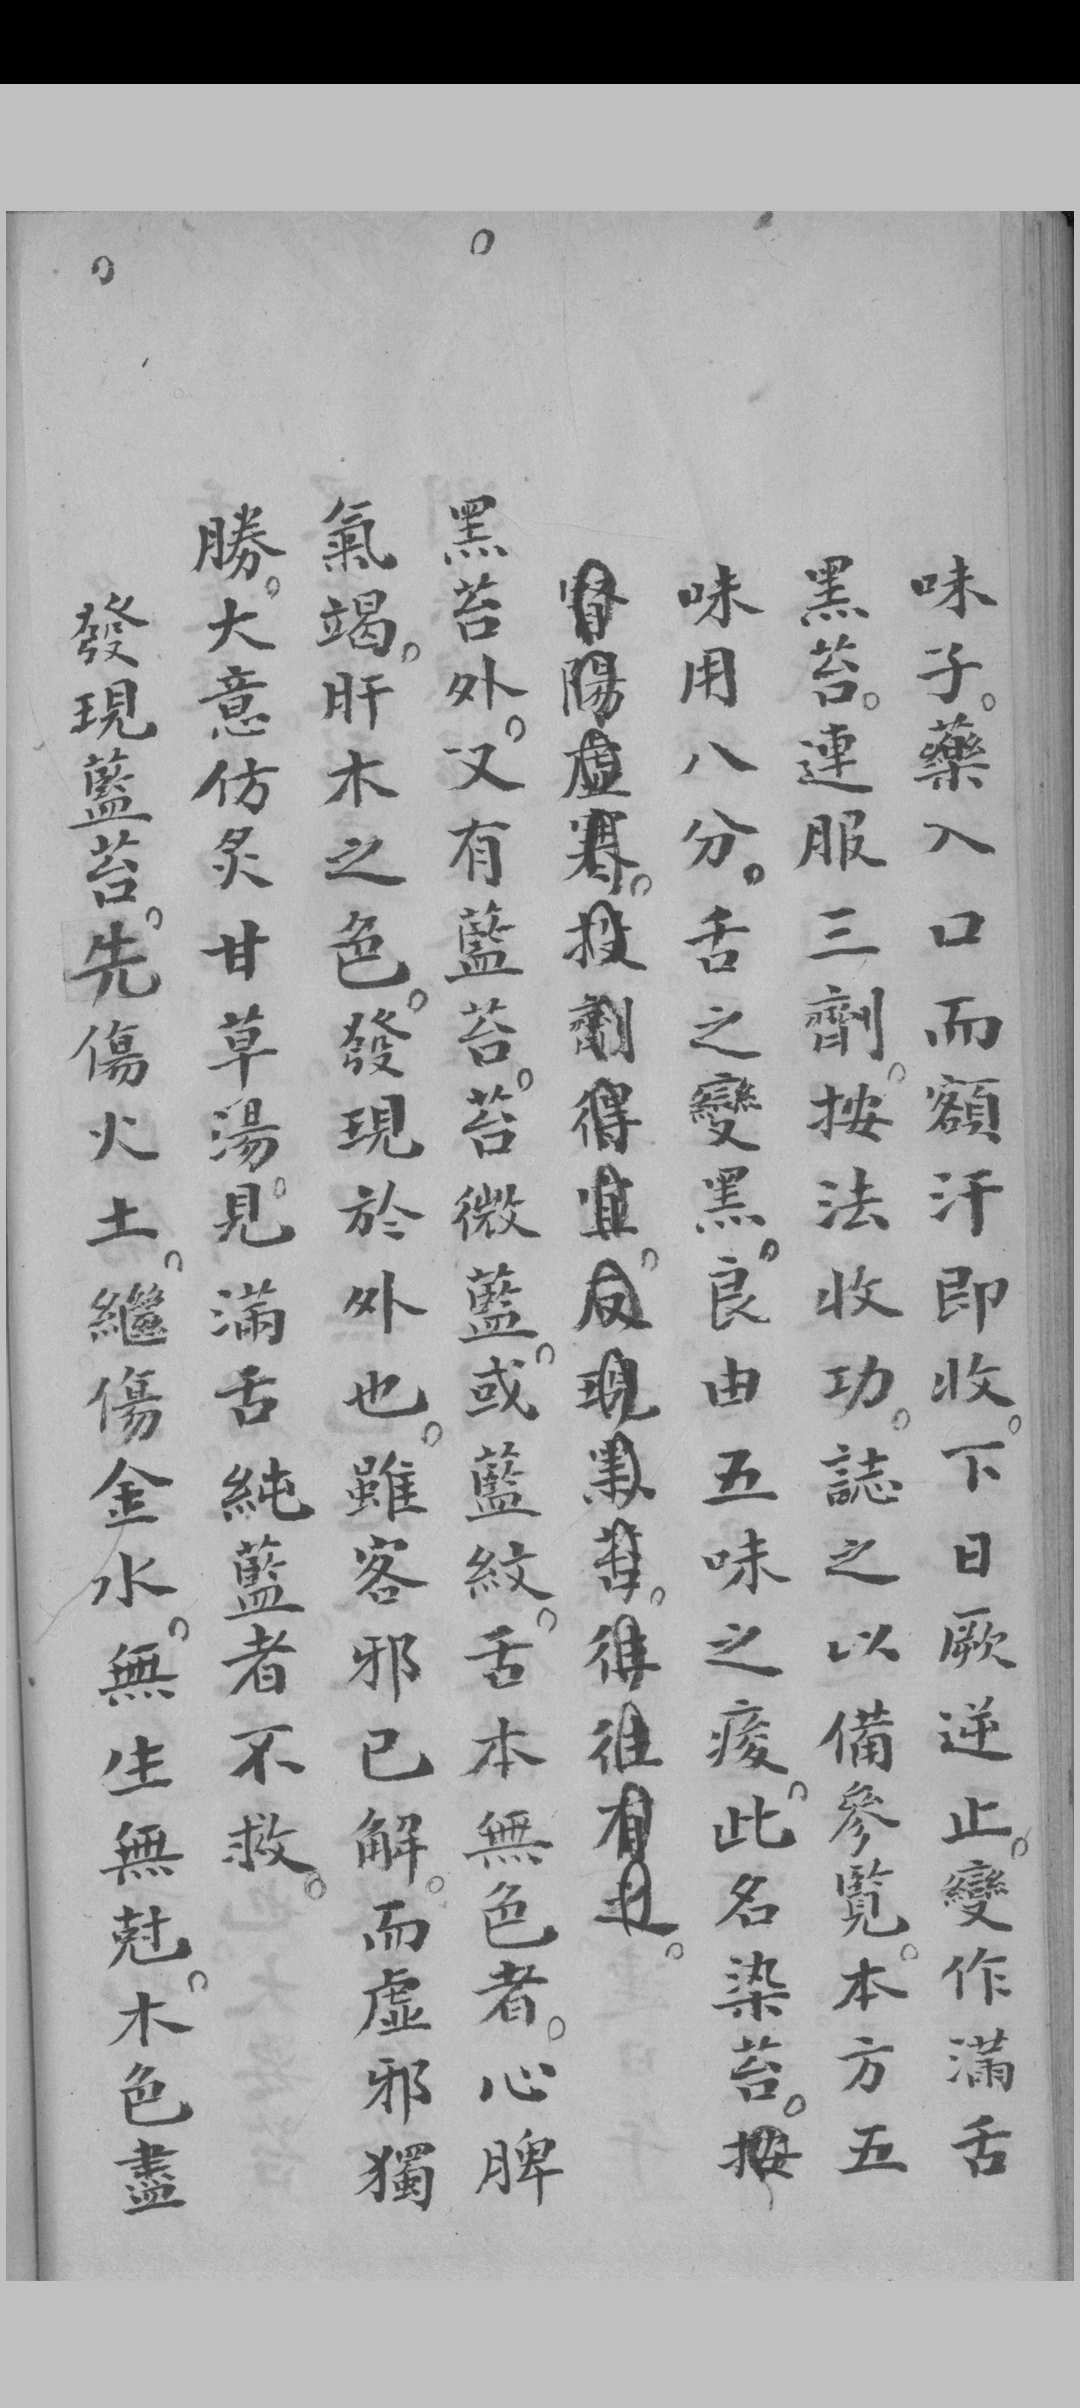 味子。藥入口而額汗即收。下日厥逆止。變作滿舌
黑苔。連服三劑。按法收功。誌之以備參覧。本方五
味用八分。舌之變黑。良由五味之痠。此名染苔。按
腎陽虛寒。投劑得宜。反現黑苔。往往有之。
黑苔外。又有藍苔。苔微藍。或藍紋。舌本無色者。心脾
氣竭。肝木之色。發現於外也。雖客邪已解。而虛邪獨
勝。大意仿炙甘草湯。見滿舌純藍者不救。
發現藍苔。先傷火土。繼傷金水。無生無尅。木色盡